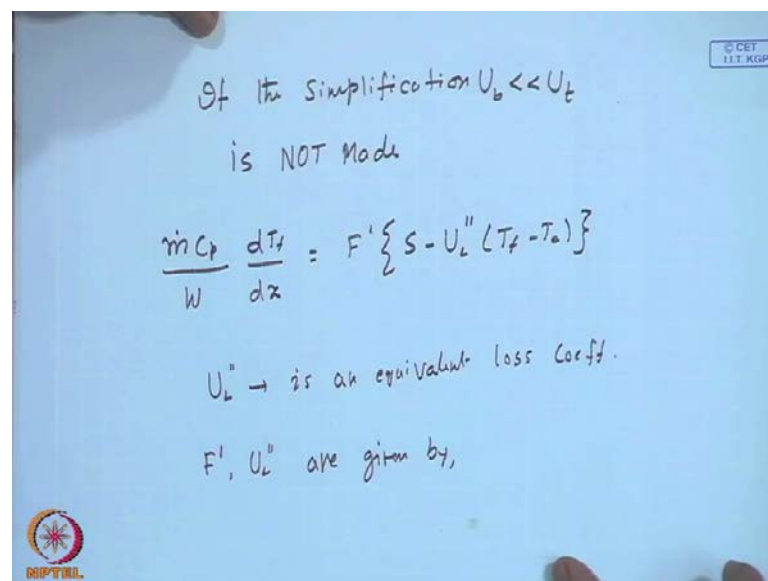 © CET
I.I.T. KGP
If the Simplification U_b << U_t
is NOT Made
ṁ Cp / W dT_f / dx = F' { S - U_L'' (T_f - T_a) }
U_L'' → is an equivalent loss Coeff.
F', U_L'' are given by,
NPTEL